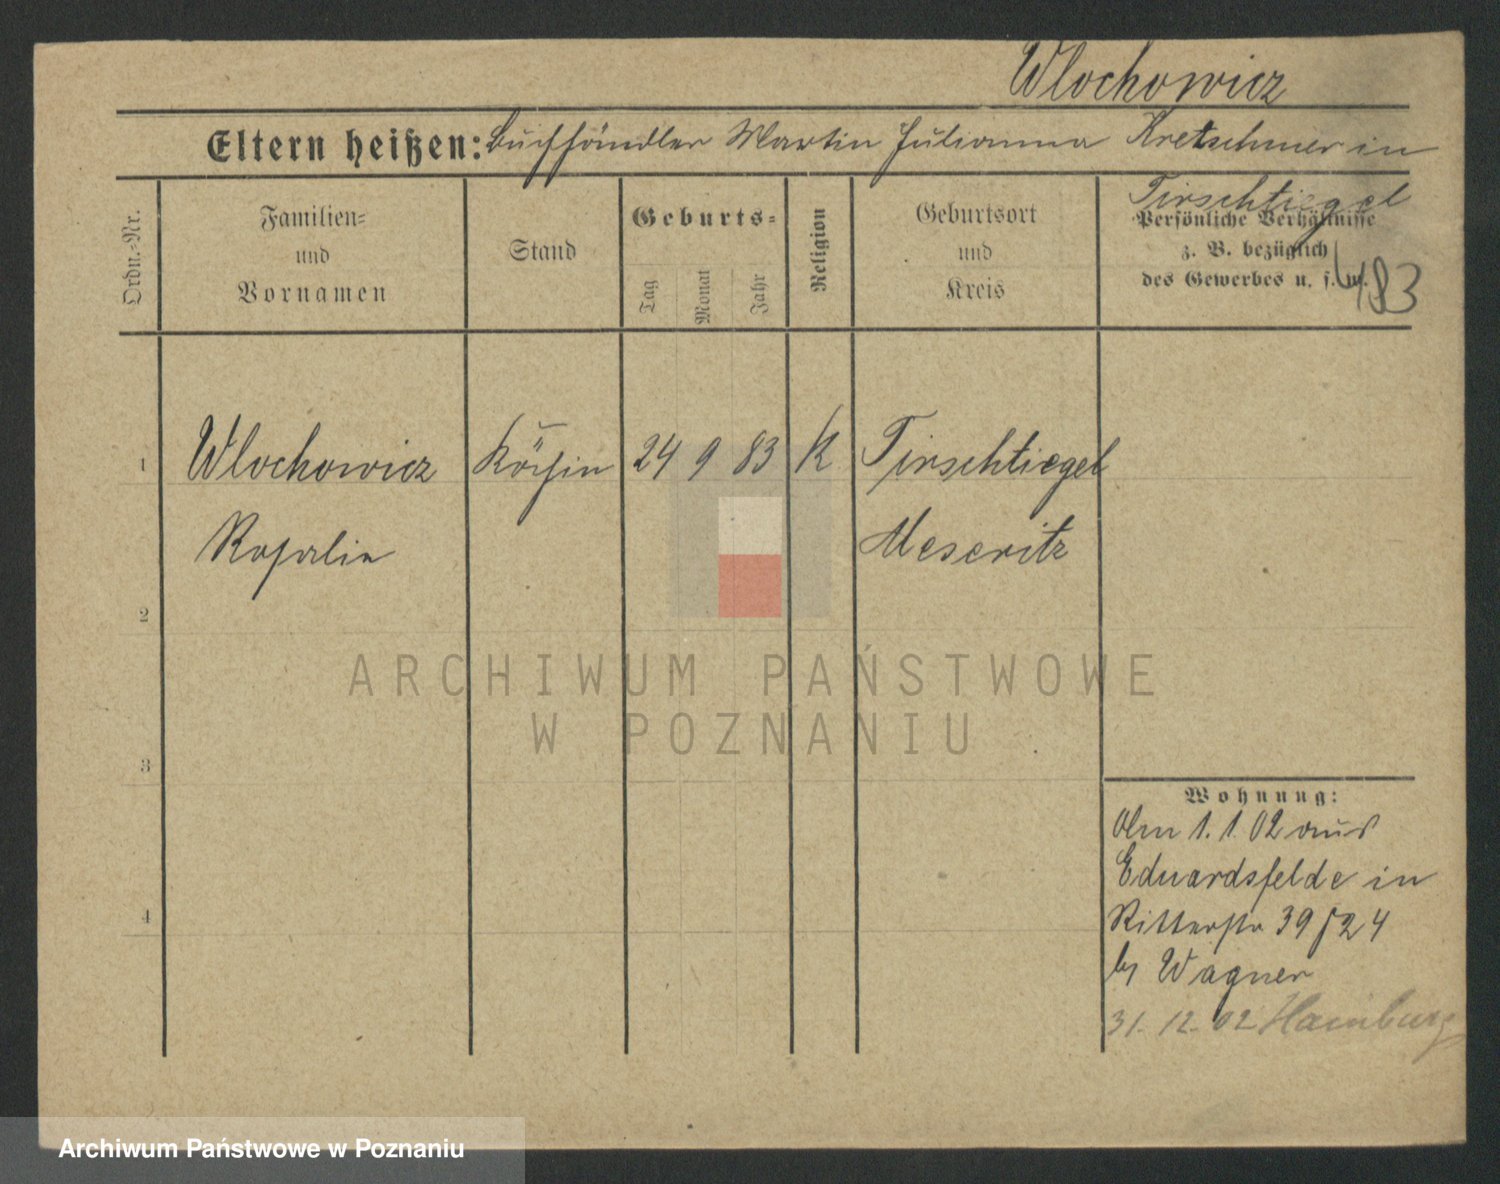 Wlochowicz
Eltern heißen: Buchhändler Martin Julianna Kretschmer in
Tirschtiegel
Ordn.-Nr.
Familien-
und
Vornamen
Stand
Geburts-
Tag
Monat
Jahr
Religion
Geburtsort
und
Kreis
Persönliche Verhältnisse
z. B. bezüglich
des Gewerbes u. s. w.
483
1 Wlochowicz Köchin 24 9 83 K Tirschtiegel
Rosalie Meseritz
2
3
4
ARCHIWUM PAŃSTWOWE
W POZNANIU
Wohnung:
Am 1.1.02 aus
Eduardsfelde in
Ritterstr 39
b/ Wagner
31.12.02 Hamburg
Archiwum Państwowe w Poznaniu